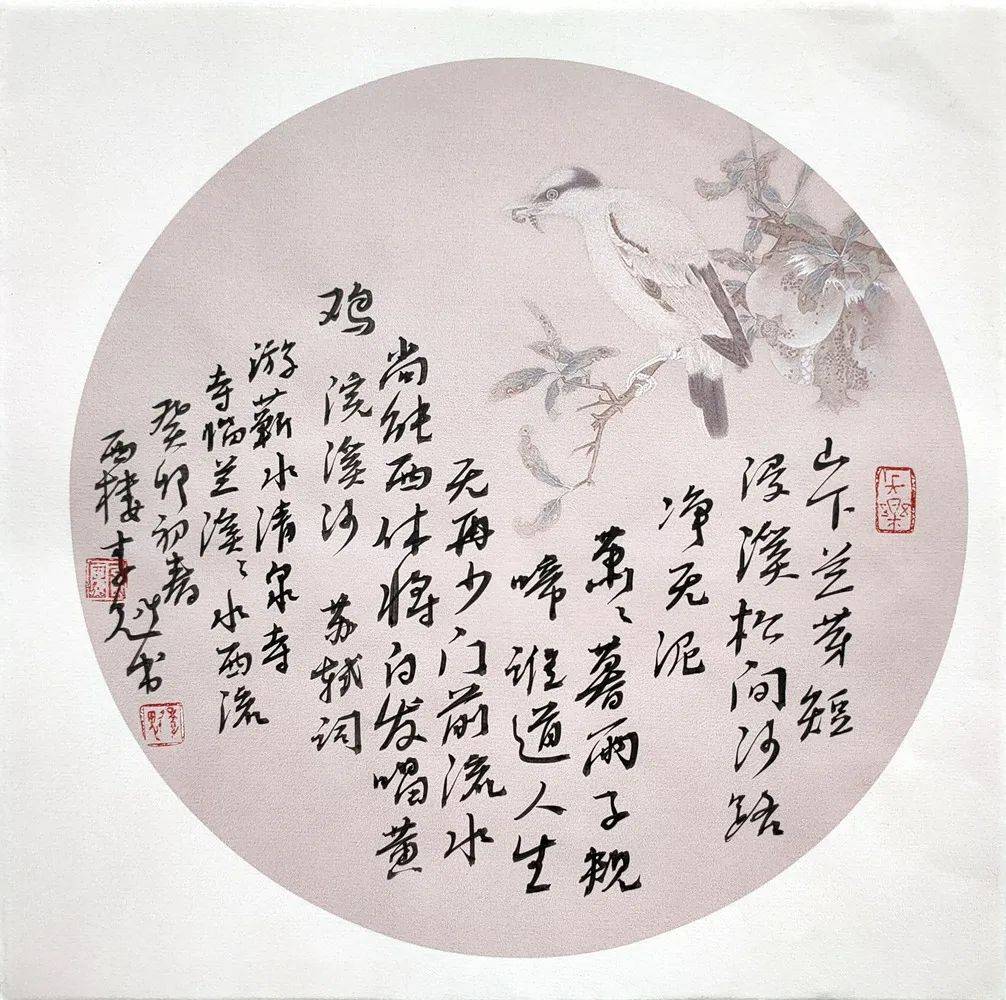 山下兰芽短
浸溪松间沙路
净无泥
萧〻暮雨子规
啼谁道人生
无再少门前流水
尚能西休将白发唱黄
鸡 浣溪沙 苏轼词
游蕲水清泉寺
寺临兰溪〻水西流
癸卯初春
西楼李书